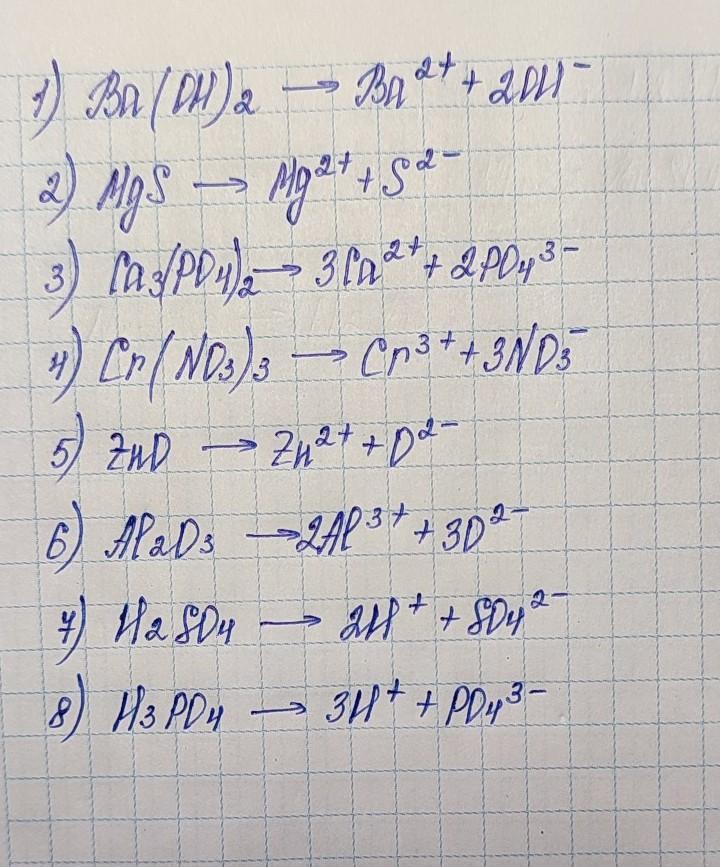 1) Ba(OH)2 → Ba2+ + 2OH-
2) MgS → Mg2+ + S2-
3) Ca3(PO4)2 → 3Ca2+ + 2PO43-
4) Cr(NO3)3 → Cr3+ + 3NO3-
5) ZnO → Zn2+ + O2-
6) Al2O3 → 2Al3+ + 3O2-
7) H2SO4 → 2H+ + SO42-
8) H3PO4 → 3H+ + PO43-